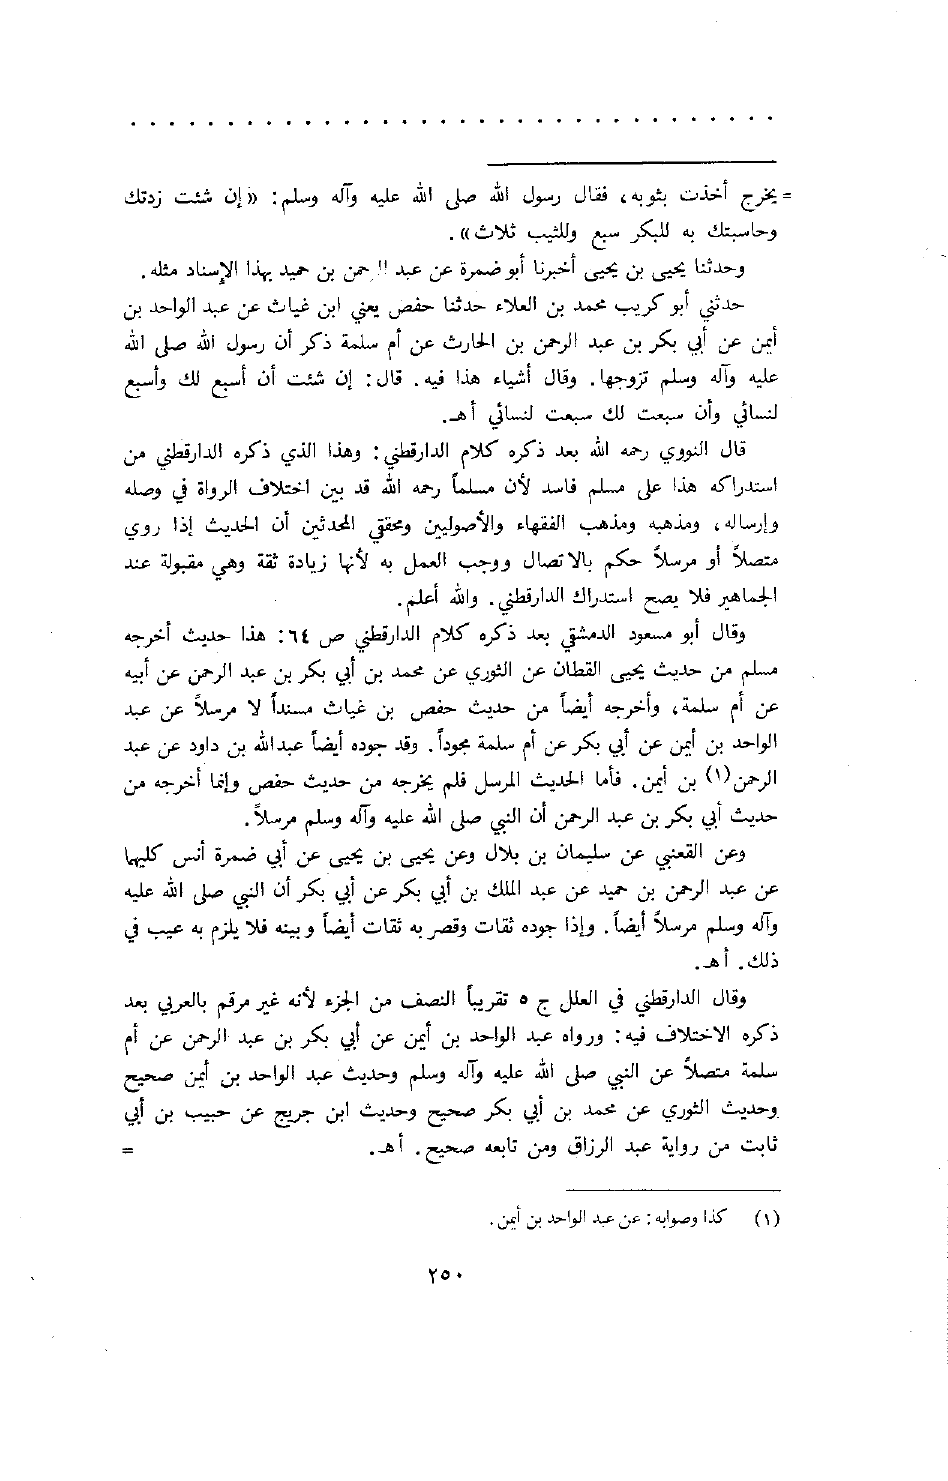 = يخرج أخذت بثوبه، فقال رسول الله صلى الله عليه وآله وسلم: «إن شئت زدتك
وحاسبتك به للبكر سبع وللثيب ثلاث».
وحدثنا يحيى بن يحيى أخبرنا أبو ضمرة عن عبد الرحمن بن حميد بهذا الإسناد مثله.
حدثني أبو كريب محمد بن العلاء حدثنا حفص يعني ابن غياث عن عبد الواحد بن
أيمن عن أبي بكر بن عبد الرحمن بن الحارث عن أم سلمة ذكر أن رسول الله صلى الله
عليه وآله وسلم تزوجها. وقال أشياء هذا فيه. قال: إن شئت أن أسبع لك وأسبع
لنسائي وأن سبعت لك سبعت لنسائي أهـ.
قال النووي رحمه الله بعد ذكره كلام الدارقطني: وهذا الذي ذكره الدارقطني من
استدراكه هذا على مسلم فاسد لأن مسلماً رحمه الله قد بين اختلاف الرواة في وصله
وإرساله، ومذهبه ومذهب الفقهاء والأصوليين ومحققي المحدثين أن الحديث إذا روي
متصلاً أو مرسلاً حكم بالاتصال ووجب العمل به لأنها زيادة ثقة وهي مقبولة عند
الجماهير فلا يصح استدراك الدارقطني. والله أعلم.
وقال أبو مسعود الدمشقي بعد ذكره كلام الدارقطني ص ٦٤: هذا حديث أخرجه
مسلم من حديث يحيى القطان عن الثوري عن محمد بن أبي بكر بن عبد الرحمن عن أبيه
عن أم سلمة، وأخرجه أيضاً من حديث حفص بن غياث مسنداً لا مرسلاً عن عبد
الواحد بن أيمن عن أبي بكر عن أم سلمة مجوداً. وقد جوده أيضاً عبدالله بن داود عن عبد
الرحمن(١) بن أيمن. فأما الحديث المرسل فلم يخرجه من حديث حفص وإنما أخرجه من
حديث أبي بكر بن عبد الرحمن أن النبي صلى الله عليه وآله وسلم مرسلاً.
وعن القعنبي عن سليمان بن بلال وعن يحيى بن يحيى عن أبي ضمرة أنس كليهما
عن عبد الرحمن بن حميد عن عبد الملك بن أبي بكر عن أبي بكر أن النبي صلى الله عليه
وآله وسلم مرسلاً أيضاً. وإذا جوده ثقات وقصر به ثقات أيضاً وبينه فلا يلزم به عيب في
ذلك. أهـ.
وقال الدارقطني في العلل ج ٥ تقريباً النصف من الجزء لأنه غير مرقم بالعربي بعد
ذكره الاختلاف فيه: ورواه عبد الواحد بن أيمن عن أبي بكر بن عبد الرحمن عن أم
سلمة متصلاً عن النبي صلى الله عليه وآله وسلم وحديث عبد الواحد بن أيمن صحيح
وحديث الثوري عن محمد بن أبي بكر صحيح وحديث ابن جريج عن حبيب بن أبي
ثابت من رواية عبد الرزاق ومن تابعه صحيح. أهـ. =
(١) كذا وصوابه: عن عبد الواحد بن أيمن.
٢٥٠